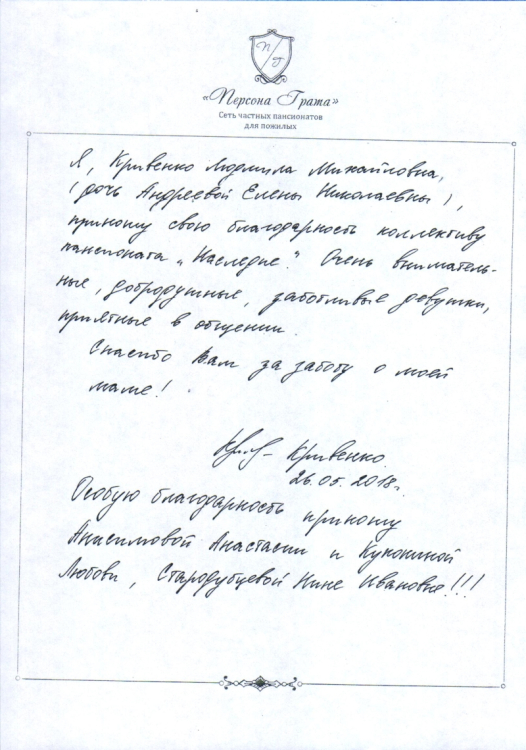 П/Г
«Персона Грата»
Сеть частных пансионатов
для пожилых
Я, Кривенко Людмила Михайловна,
(дочь Андреевой Елены Николаевны),
приношу свою благодарность коллективу
пансионата „Наследие". Очень вниматель-
ные, добродушные, заботливые девушки,
приятные в общении.
Спасибо Вам за заботу о моей
маме!
Кривенко
26.05.2018г.
Особую благодарность приношу
Анисимовой Анастасии и Кукониной
Любови, Стародубцевой Нине Ивановне!!!